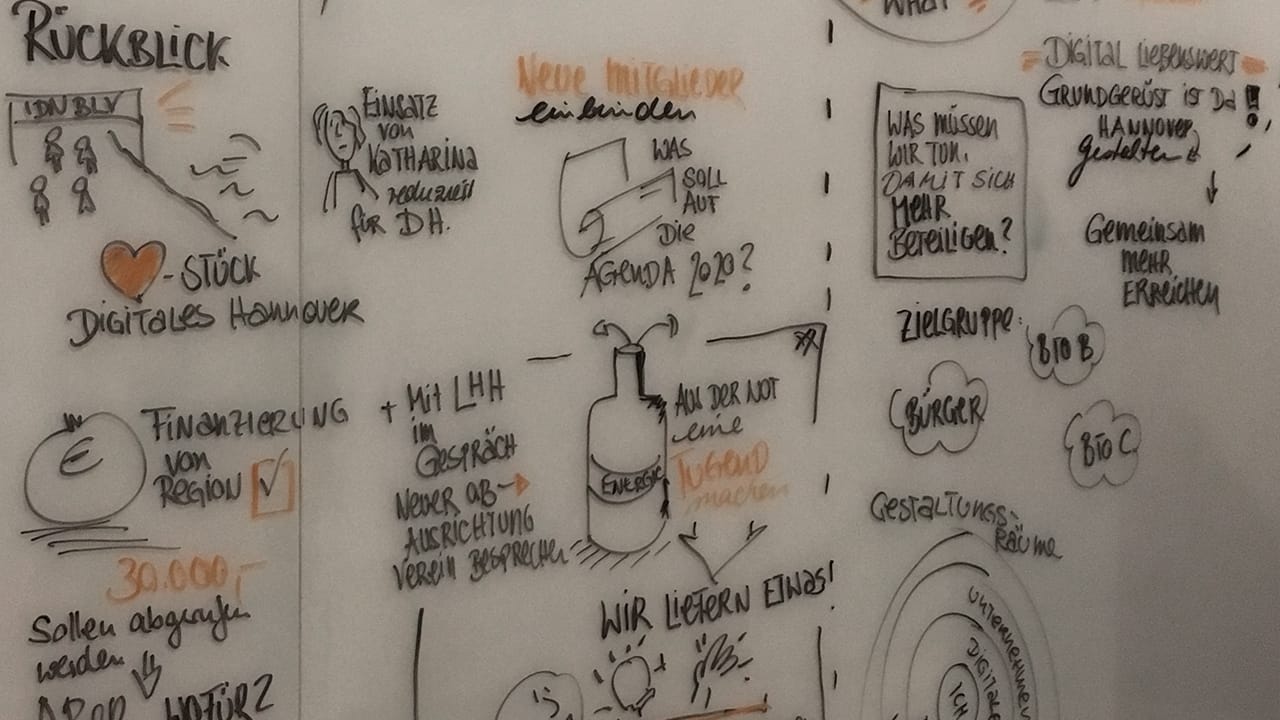 RÜCKBLICK
IDN BLV
-STÜCK
DIGITALES HANNOVER
€
FINANZIERUNG
VON
REGION
30.000,-
Sollen abgerufen
werden
WOFÜR?
EINSATZ
VON
KATHARINA
reduziert
für DH.
Neue Mitglieder
einbinden
WAS
SOLL
AUF
Die
AGENDA 2020?
+ Mit LHH
im
GESPRÄCH
NEUER AB
AUSRICHTUNG
VEREIN BESPRECHEN
ENERGIE
AUS DER NOT
eine
TUGEND
machen
WIR LIEFERN ETWAS!
WHAT
WAS MÜSSEN
WIR TUN,
DAMIT SICH
MEHR
BETEILIGEN?
DIGITAL LIEBENSWERT
GRUNDGERÜST IST DA!
HANNOVER
gestalten
Gemeinsam
MEHR
ERREICHEN
ZIELGRUPPE:
BTO B
BÜRGER
BTO C
GESTALTUNGS-
RÄUME
UNTERNEHMEN
DIGITALE
ICH